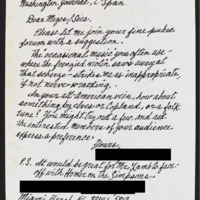 Washington Journal, C-Span
Dear Msges/Sirs,
Please let me join your fine public
forum with a suggestion.
The occasional music you often use -
where the frenzied violin saws away at
that scherzo - strikes me as inappropriate,
if not nerve-wracking.
In your all-American vein, how about
something by Ives or Copland, or a folk
tune? You might try out a few, and ask
the interested members of your audience
express a preference.
Yours,
P.S. It would be great for Mr. Lamb to face-
off with Homer on The Simpsons.
Miami Beach, FL